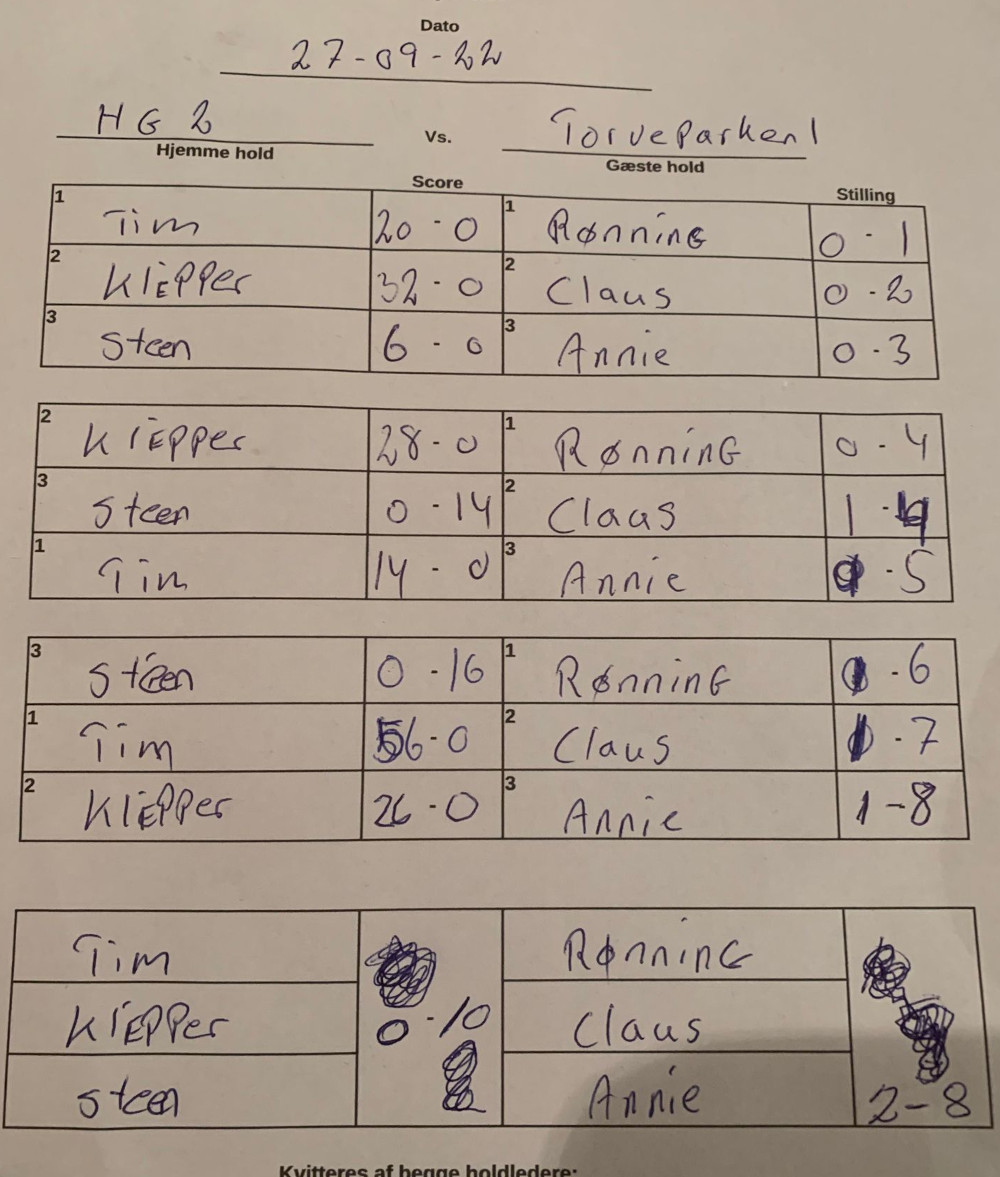 Dato
27-09-22
HG 2 Vs. Torveparken 1
Hjemme hold Gæste hold
Score Stilling
1 Tim 20 - 0 1 Rønning 0 - 1
2 Klepper 32 - 0 2 Claus 0 - 2
3 Steen 6 - 0 3 Annie 0 - 3
2 Klepper 28 - 0 1 Rønning 0 - 4
3 Steen 0 - 14 2 Claus 1 - 4
1 Tim 14 - 0 3 Annie 1 - 5
3 Steen 0 - 16 1 Rønning 1 - 6
1 Tim 56 - 0 2 Claus 1 - 7
2 Klepper 26 - 0 3 Annie 1 - 8
Tim Rønning
Klepper 0 - 10 Claus
Steen Annie 2 - 8
Kvitteres af begge holdledere: